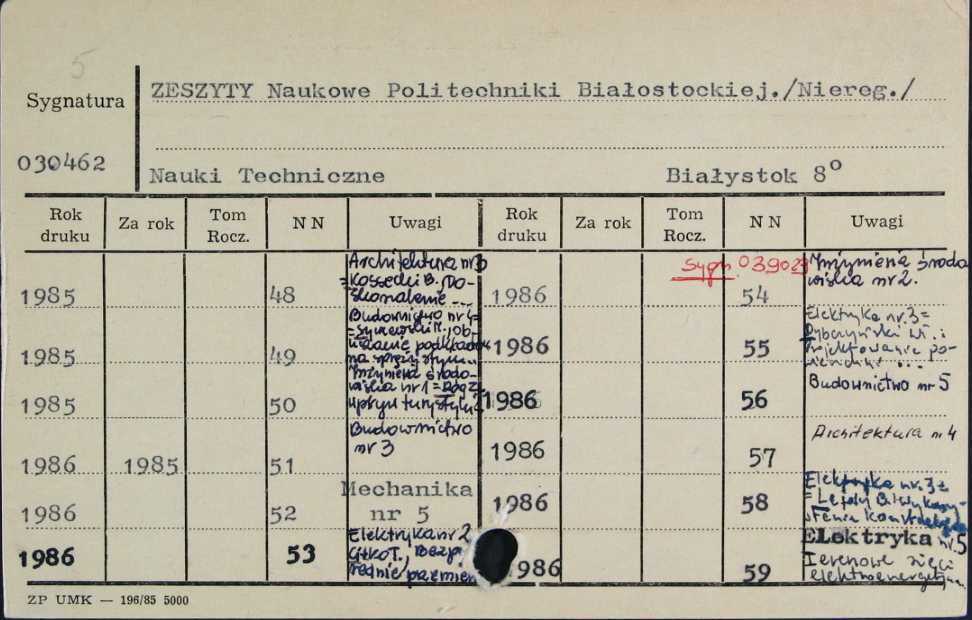 5
ZESZYTY Naukowe Politechniki Białostockiej./Niereg./
Sygnatura
030462
Nauki Techniczne Białystok 8°
Rok druku Za rok Tom Rocz. NN Uwagi Rok druku Za rok Tom Rocz. NN Uwagi
1985 48 Architektura nr
= Kossecki B. Do-
skonalenie ...
1985 49 Budownictwo nr 4=
1985 50 Inżynieria środo-
wiska nr 1 =
wpływ turystyki
1986 1985 51 Budownictwo
nr 3
1986 52 Mechanika
nr 5
1986 53 Elektryka nr 2
średnie przemien
Sygn. 039023
1986 54 Inżynieria środo
wiska nr 2.
1986 55 Elektryka nr.3=
Projektowanie po-
1986 56 Budownictwo nr 5
1986 57 Architektura nr 4
1986 58 Elektryka nr.
1986 59 Elektryka nr.5
Terenowe sieci
elektroenergety
ZP UMK — 196/85 5000